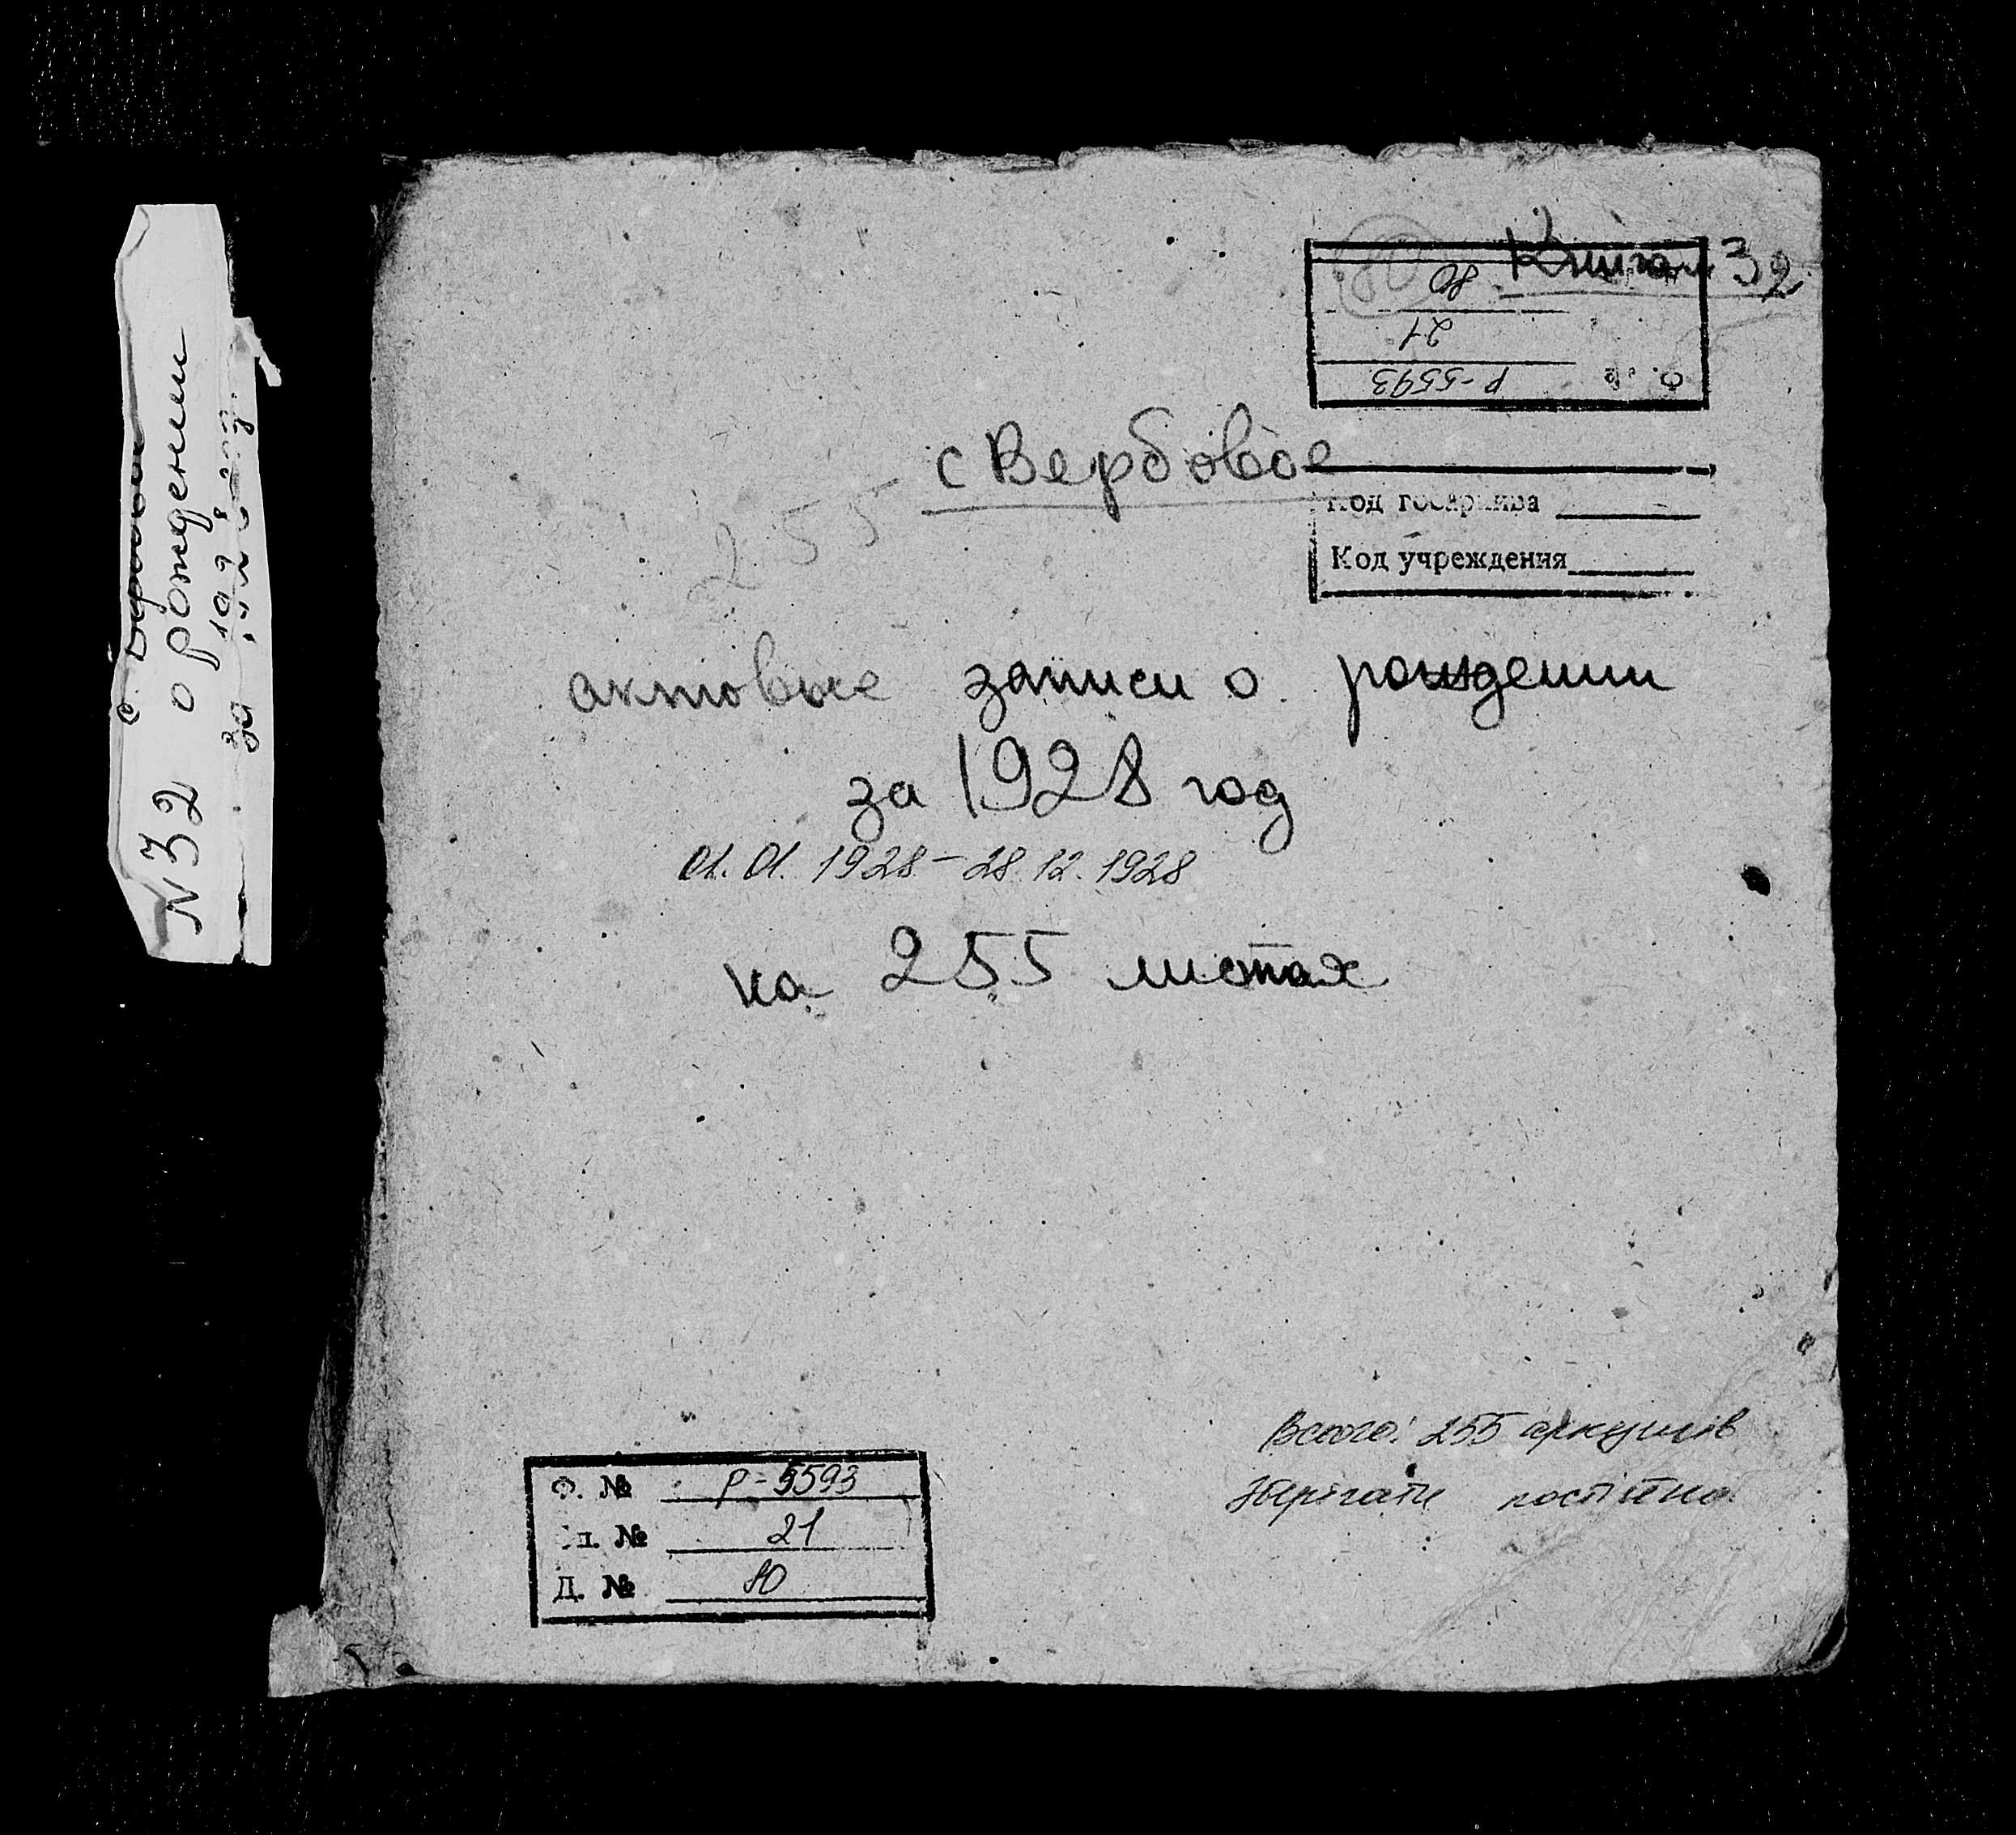 Книга 32
80
80
21
Р-5593
Ф. №
с Вербовое
255
Код госархива
Код учреждения
актовые записи о рождении
за 1928 год
01.01.1928 – 28.12.1928
на 255 листах
Всього: 255 аркушів
Зберігати постійно.
Ф. № Р-5593
Оп. № 21
Д. № 80
N32 о рождении
за 1928